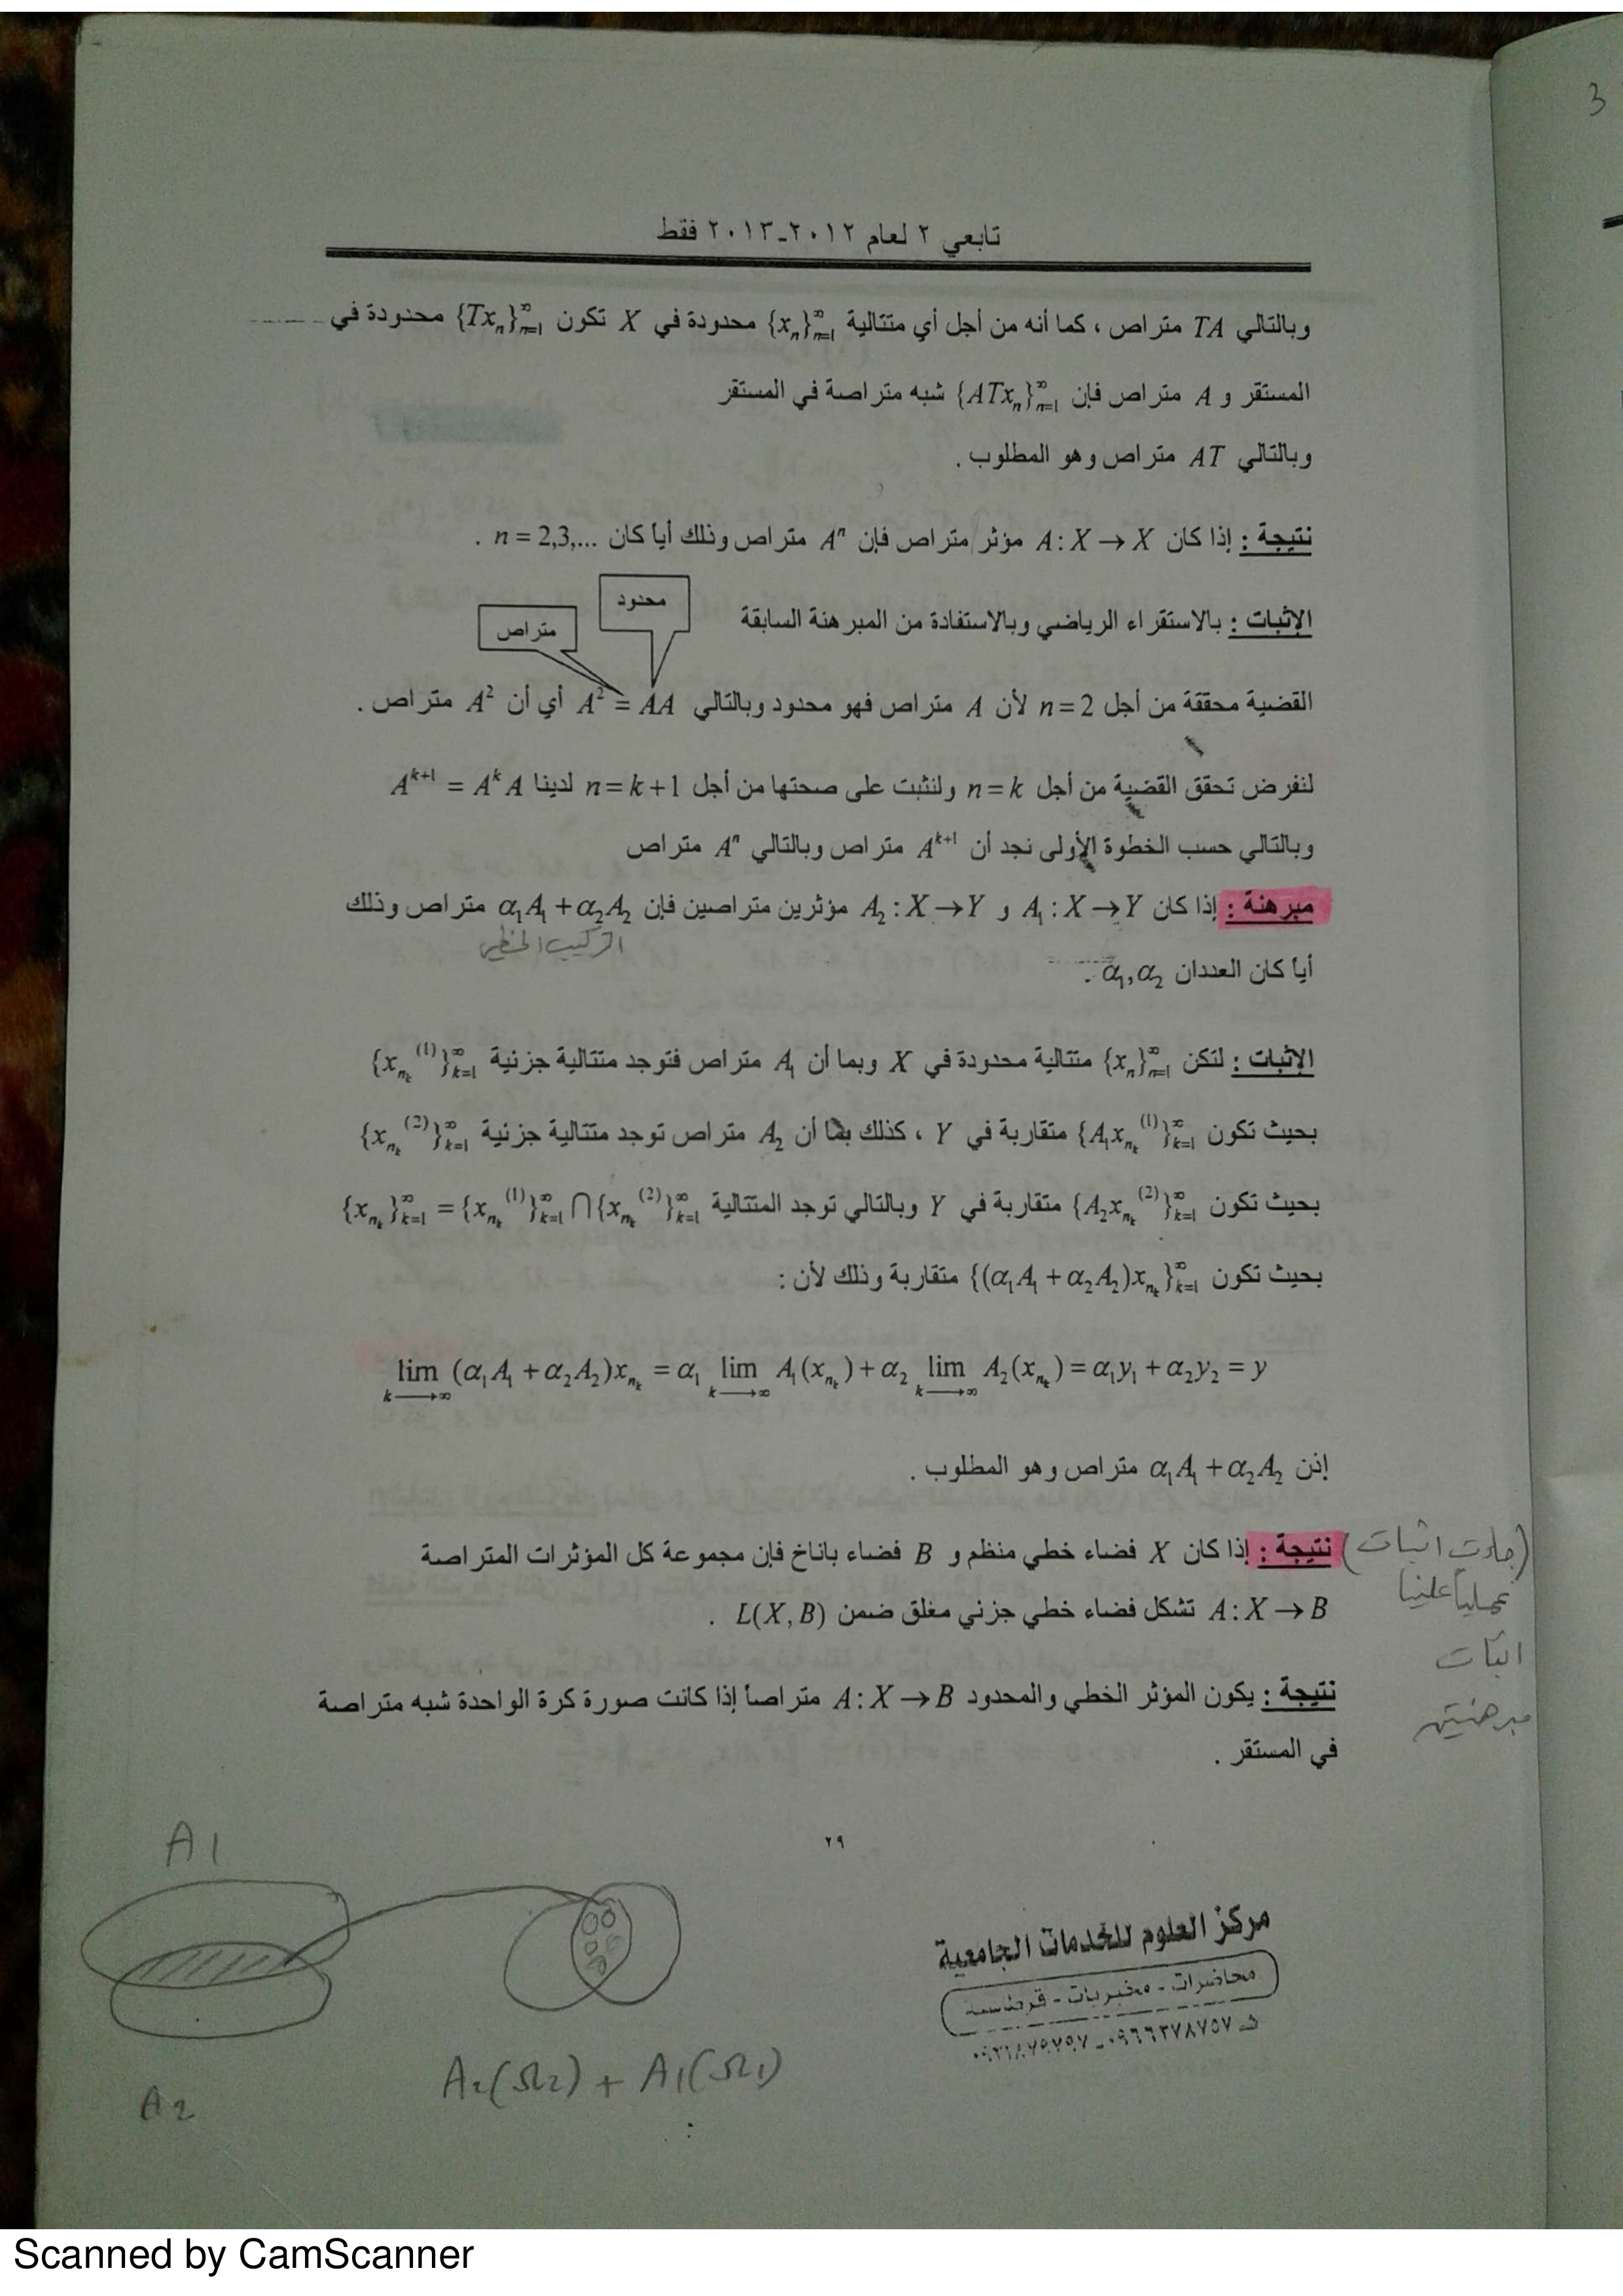 3
تابعي ٢ لعام ٢٠١٢-٢٠١٣ فقط
وبالتالي TA متراص ، كما أنه من أجل أي متتالية {xₙ}ₙ₌₁^∞ محدودة في X تكون {Txₙ}ₙ₌₁^∞ محدودة في
المستقر و A متراص فإن {ATxₙ}ₙ₌₁^∞ شبه متراصة في المستقر
وبالتالي AT متراص وهو المطلوب .
نتيجة : إذا كان A : X → X مؤثر متراص فإن Aⁿ متراص وذلك أياً كان n = 2,3,... .
محدود
متراص
الإثبات : بالاستقراء الرياضي وبالاستفادة من المبرهنة السابقة
القضية محققة من أجل n = 2 لأن A متراص فهو محدود وبالتالي A² = AA أي أن A² متراص .
لنفرض تحقق القضية من أجل n = k ولنثبت على صحتها من أجل n = k+1 لدينا A^{k+1} = A^k A
وبالتالي حسب الخطوة الأولى نجد أن A^{k+1} متراص وبالتالي Aⁿ متراص
مبرهنة : إذا كان A₁ : X → Y و A₂ : X → Y مؤثرين متراصين فإن α₁A₁ + α₂A₂ متراص وذلك
التركيب الخطي
أياً كان العددان α₁,α₂ .
الإثبات : لتكن {xₙ}ₙ₌₁^∞ متتالية محدودة في X وبما أن A₁ متراص فتوجد متتالية جزئية {x_{n_k}^{(1)}}_{k=1}^∞
بحيث تكون {A₁x_{n_k}^{(1)}}_{k=1}^∞ متقاربة في Y ، كذلك بما أن A₂ متراص توجد متتالية جزئية {x_{n_k}^{(2)}}_{k=1}^∞
بحيث تكون {A₂x_{n_k}^{(2)}}_{k=1}^∞ متقاربة في Y وبالتالي توجد المتتالية {x_{n_k}}_{k=1}^∞ = {x_{n_k}^{(1)}}_{k=1}^∞ ⋂ {x_{n_k}^{(2)}}_{k=1}^∞
بحيث تكون {(α₁A₁ + α₂A₂)x_{n_k}}_{k=1}^∞ متقاربة وذلك لأن :
lim_{k→∞} (α₁A₁ + α₂A₂)x_{n_k} = α₁ lim_{k→∞} A₁(x_{n_k}) + α₂ lim_{k→∞} A₂(x_{n_k}) = α₁y₁ + α₂y₂ = y
إذن α₁A₁ + α₂A₂ متراص وهو المطلوب .
نتيجة : إذا كان X فضاء خطي منظم و B فضاء باناخ فإن مجموعة كل المؤثرات المتراصة
A : X → B تشكل فضاء خطي جزئي مغلق ضمن L(X,B) .
(جاءت اثبات)
عملياً علينا
اثبات
مبرهنتين
نتيجة : يكون المؤثر الخطي والمحدود A : X → B متراصاً إذا كانت صورة كرة الواحدة شبه متراصة
في المستقر .
٢٩
A1
A2
A₂(Ω₂) + A₁(Ω₁)
مركز العلوم للخدمات الجامعية
محاضرات - مخبريات - قرطاسية
Scanned by CamScanner